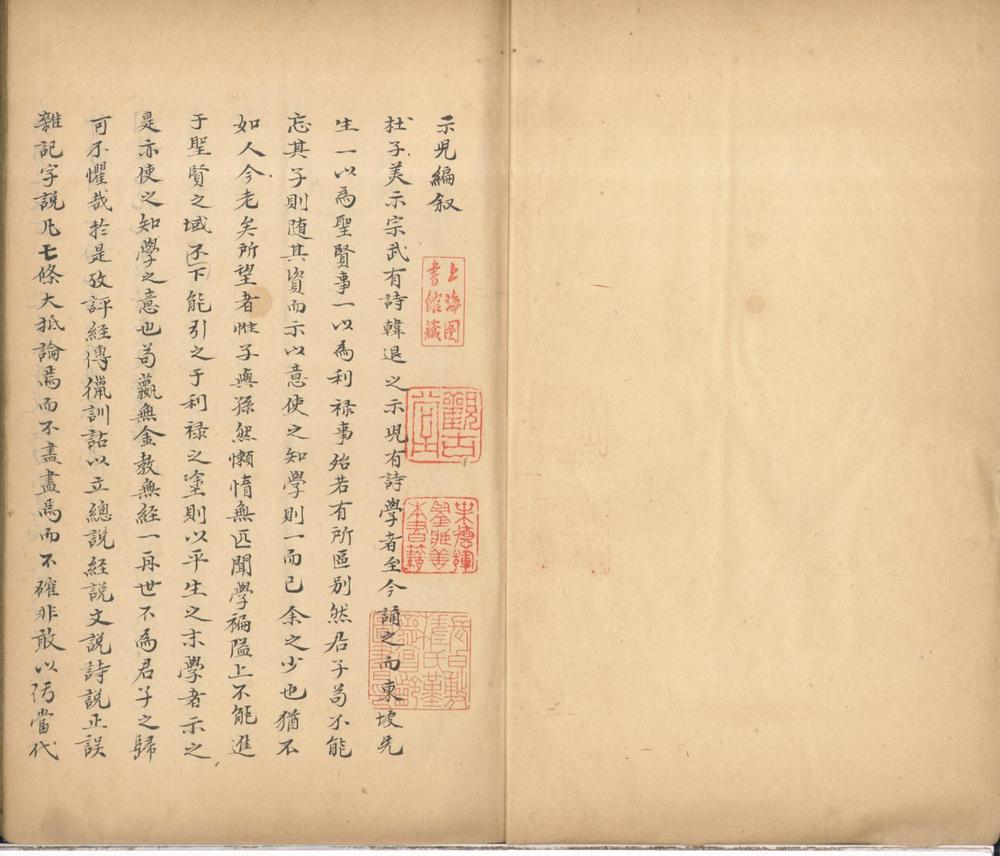 示兒編叙
杜子美示宗武有詩韓退之示兒有詩學者至今誦之而東坡先
生一以為聖賢事一以為利禄事殆若有所區别然君子苟不能
忘其子則随其資而示以意使之知學則一而已余之少也猶不
如人今老矣所望者惟子與孫然懶惰無匹聞學褊隘上不能進
于聖賢之域下不能引之于利禄之塗則以平生之末學者示之
是亦使之知學之意也苟籯無金教無經一再世不為君子之歸
可不懼哉於是攷評經傳獵訓詁以立總說經說文說詩說正誤
雜記字說凡七條大抵論焉而不盡盡焉而不確非敢以污當代
上海圖
書館藏
觀古
堂